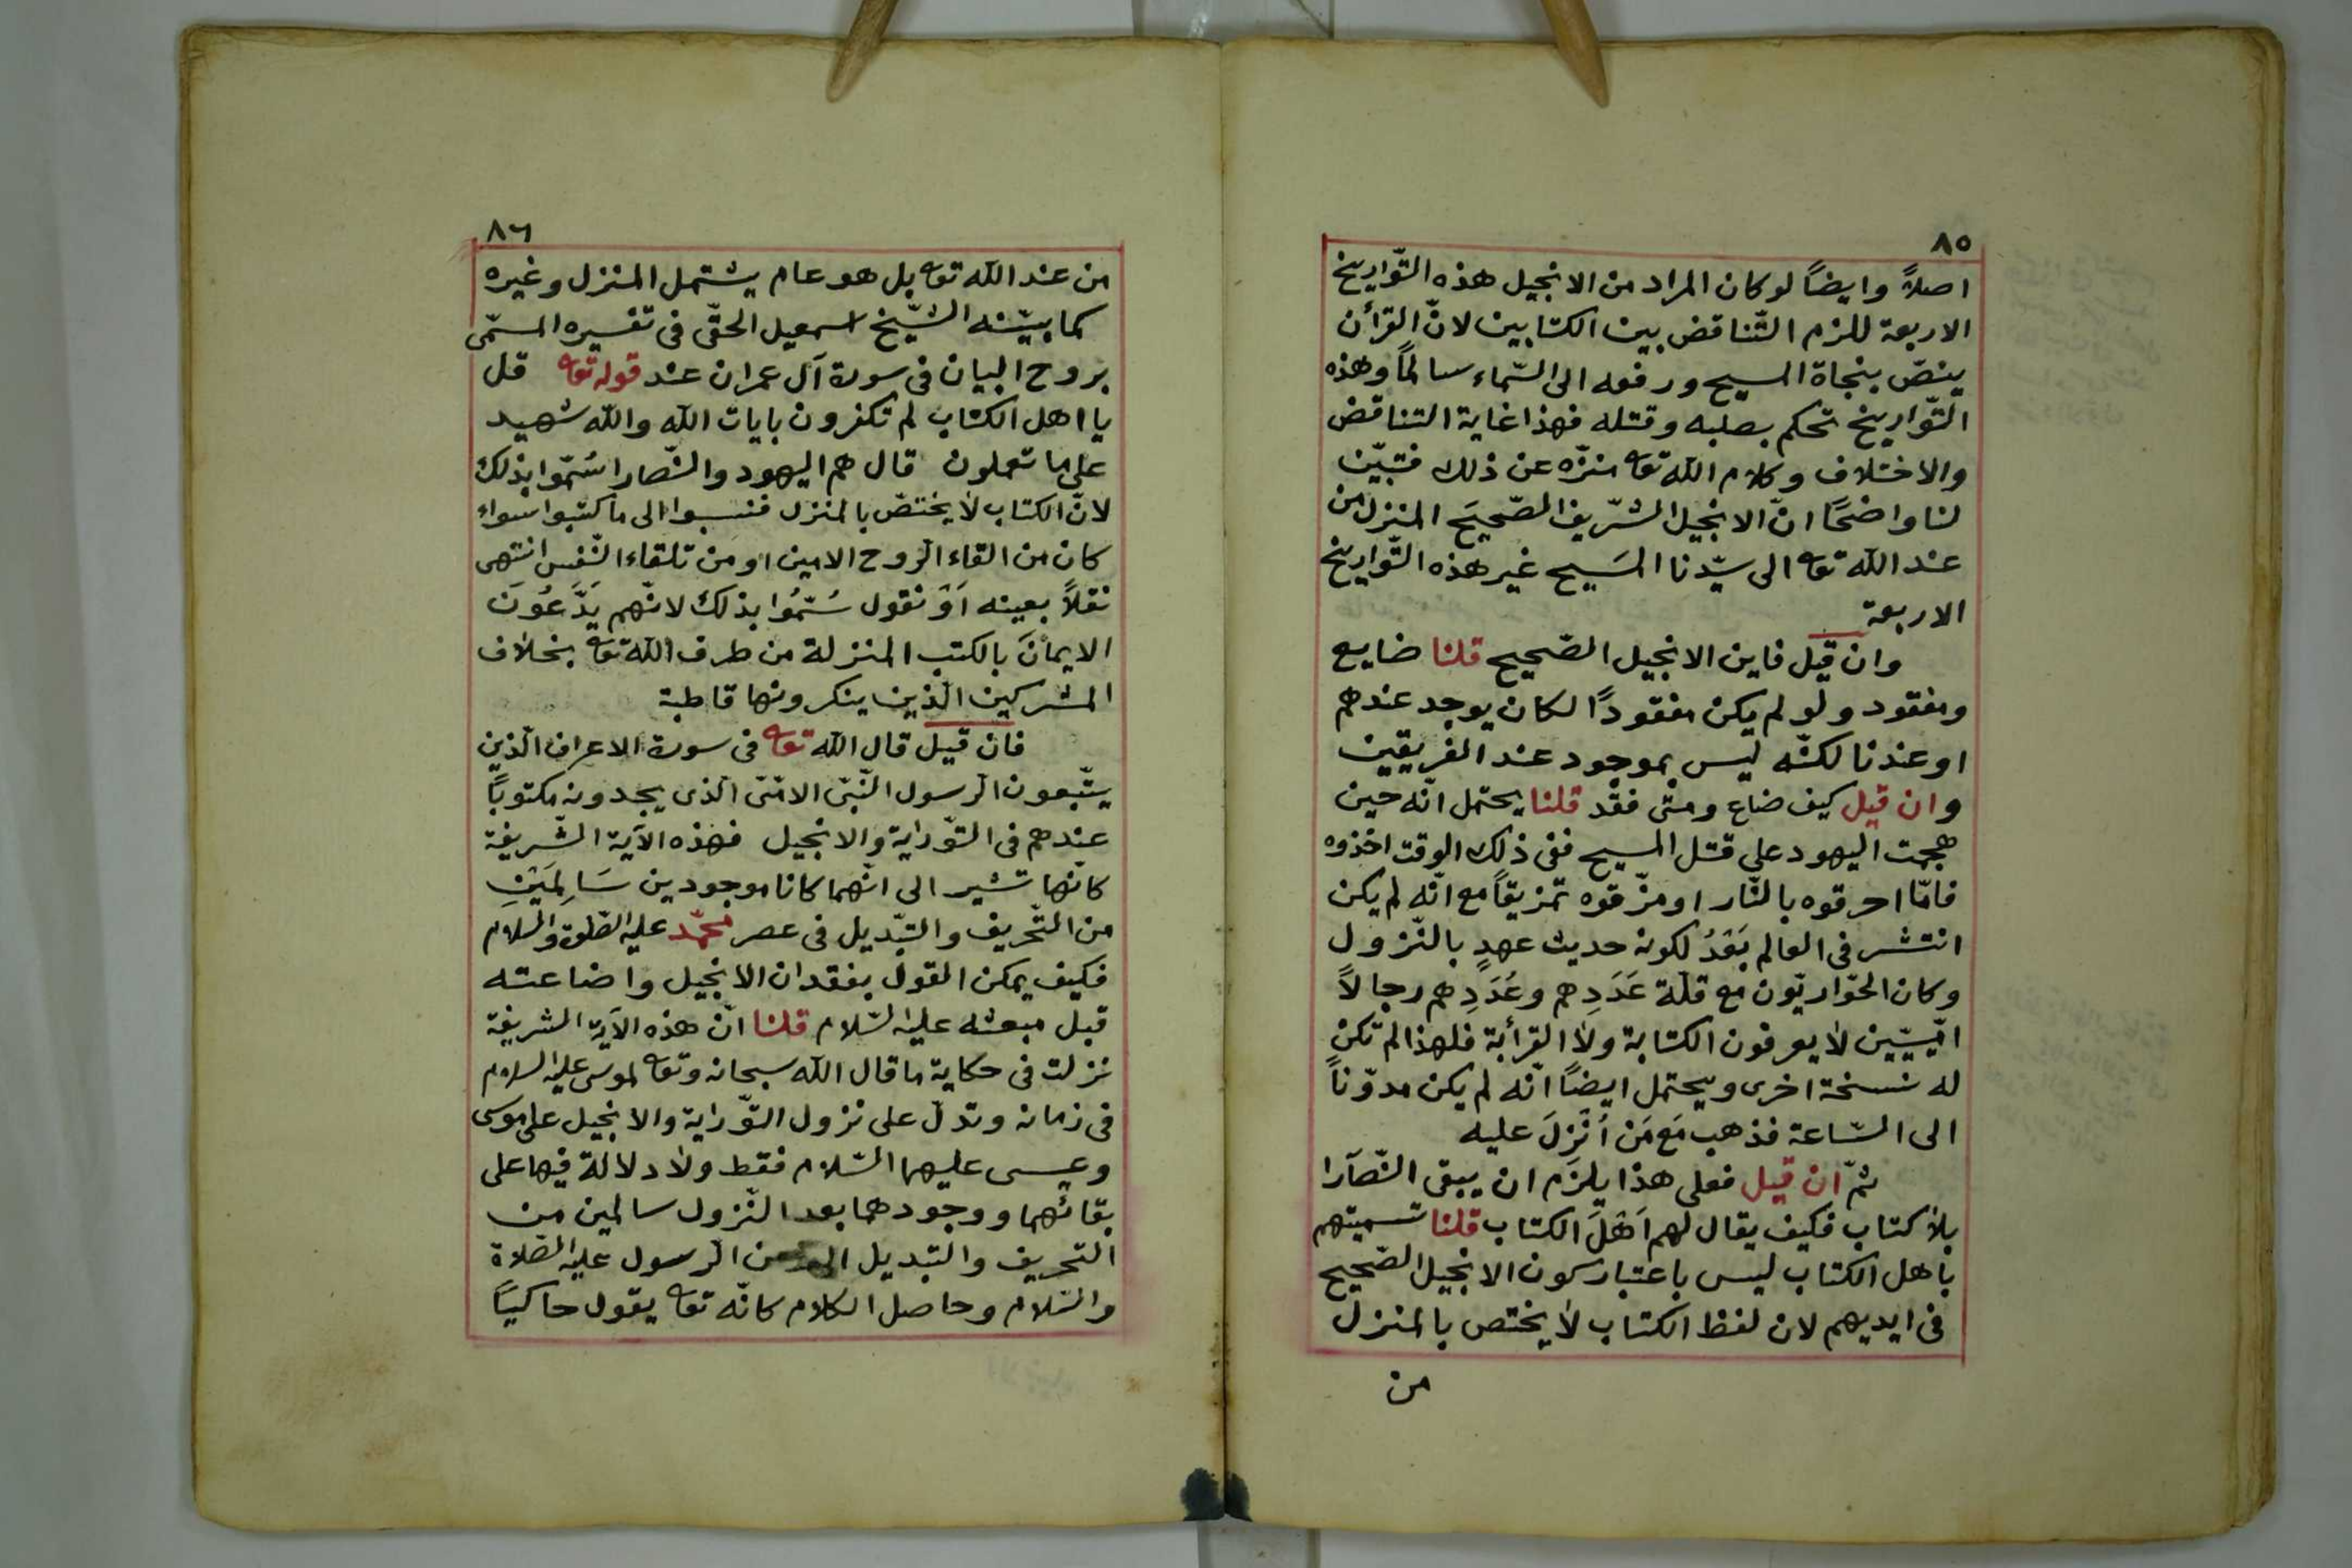 ٨٥
اصلاً وايضاً لو كان المراد من الانجيل هذه التّواريخ
الاربعة للزم التّناقض بين الكتابين لانّ القرأن
ينصّ بنجاة المسيح ورفعه الى السّماء سالماً وهذه
التّواريخ تحكم بصلبه وقتله فهذا غاية التناقض
والاختلاف وكلام الله تعا منزّه عن ذلك فتبيّن
لنا واضحًا انّ الانجيل الشّريف الصّحيحَ المنزل من
عند الله تعا الى سيّدنا المَسيح غير هذه التّواريخ
الاربعة
وان قيل فاين الانجيل الصّحيح قلنا ضايع
ومفقود ولو لم يكن مفقودًا لكان يوجد عندهم
او عندنا لكنّه ليس بموجود عند الفريقين
وان قيل كيف ضاع ومتى فقد قلنا يحتمل انّه حين
هجمت اليهود على قتل المسيح ففى ذلك الوقت اخذوه
فامّا احرقوه بالنّار او مزّقوه تمزيقاً مع انّه لم يكن
انتشر فى العالم بَعْدُ لكونه حديث عهدٍ بالنّزول
وكان الحوّاريّون مع قلّة عَدَدِهم وعُدَدِهم رجالاً
امّيّين لا يعرفون الكتابة ولا القرأبة فلهذا لم تكن
له نسخة اخرى ويحتمل ايضاً انّه لم يكن مدوّناً
الى السّاعة فذهب مَع مَن اُنْزِلَ عليه
ثمّ ان قيل فعلى هذا يلزَم ان يبقى النّصآرا
بلا كتاب فكيف يقال لهم اَهْلَ الكتاب قلنا تسميتهم
باهل الكتاب ليس باعتبار كون الانجيل الصّحيح
فى ايديهم لان لفظ الكتاب لا يختص بالمنزل
من
٨٦
من عند الله تعا بل هو عام يشتمل المنزل وغيره
كما بيّنه الشّيخ اسمعيل الحقّى فى تفسيره المسمّى
بروح البيان فى سورة آل عمران عند قوله تعا قل
يا اهل الكتاب لم تكفرون بايات الله والله شهيد
على ما تعملون قال هم اليهود والنّصارا سُمّوا بذلك
لانّ الكتاب لا يختصّ بالمنزل فنسبوا الى ما كتبوا سواء
كان من القاء الرّوح الامين او من تلقاء النّفس انتهى
نقلاً بعينه اَوْ نقول سُمّوُا بذلك لانّهم يَدَّعُونَ
الايمانَ بالكتب المنزلة من طرف الله تعا بخلاف
المشركين الّذين ينكرونها قاطبة
فان قيل قال الله تعا فى سورة الاعراف الّذين
يتّبعون الرّسول النّبىّ الامّىّ الّذى يجدونه مكتوبًا
عندهم فى التّوراية والانجيل فهذه الآية الشّريفة
كانّها تشير الى انّهما كانا موجودين سَالِمَيْنِ
من التّحريف والتّبديل فى عصر محمّد عليه الصّلوة والسلام
فكيف يمكن القول بفقدان الانجيل واضاعته
قبل مبعثه عليه السّلام قلنا انّ هذه الآية الشريفة
نزلت فى حكاية ما قال الله سبحانه وتعا لموسى عليه السلام
فى زمانه وتدلّ على نزول التّوراية والانجيل على موسى
وعيسى عليهما السّلام فقط ولا دلالة فيها على
بقائهما ووجودهما بعد النّزول سالمين من
التحريف والتبديل الى زمن الرّسول عليه الصّلاة
والسّلام وحاصل الكلام كانّه تعا يقول حاكيًا